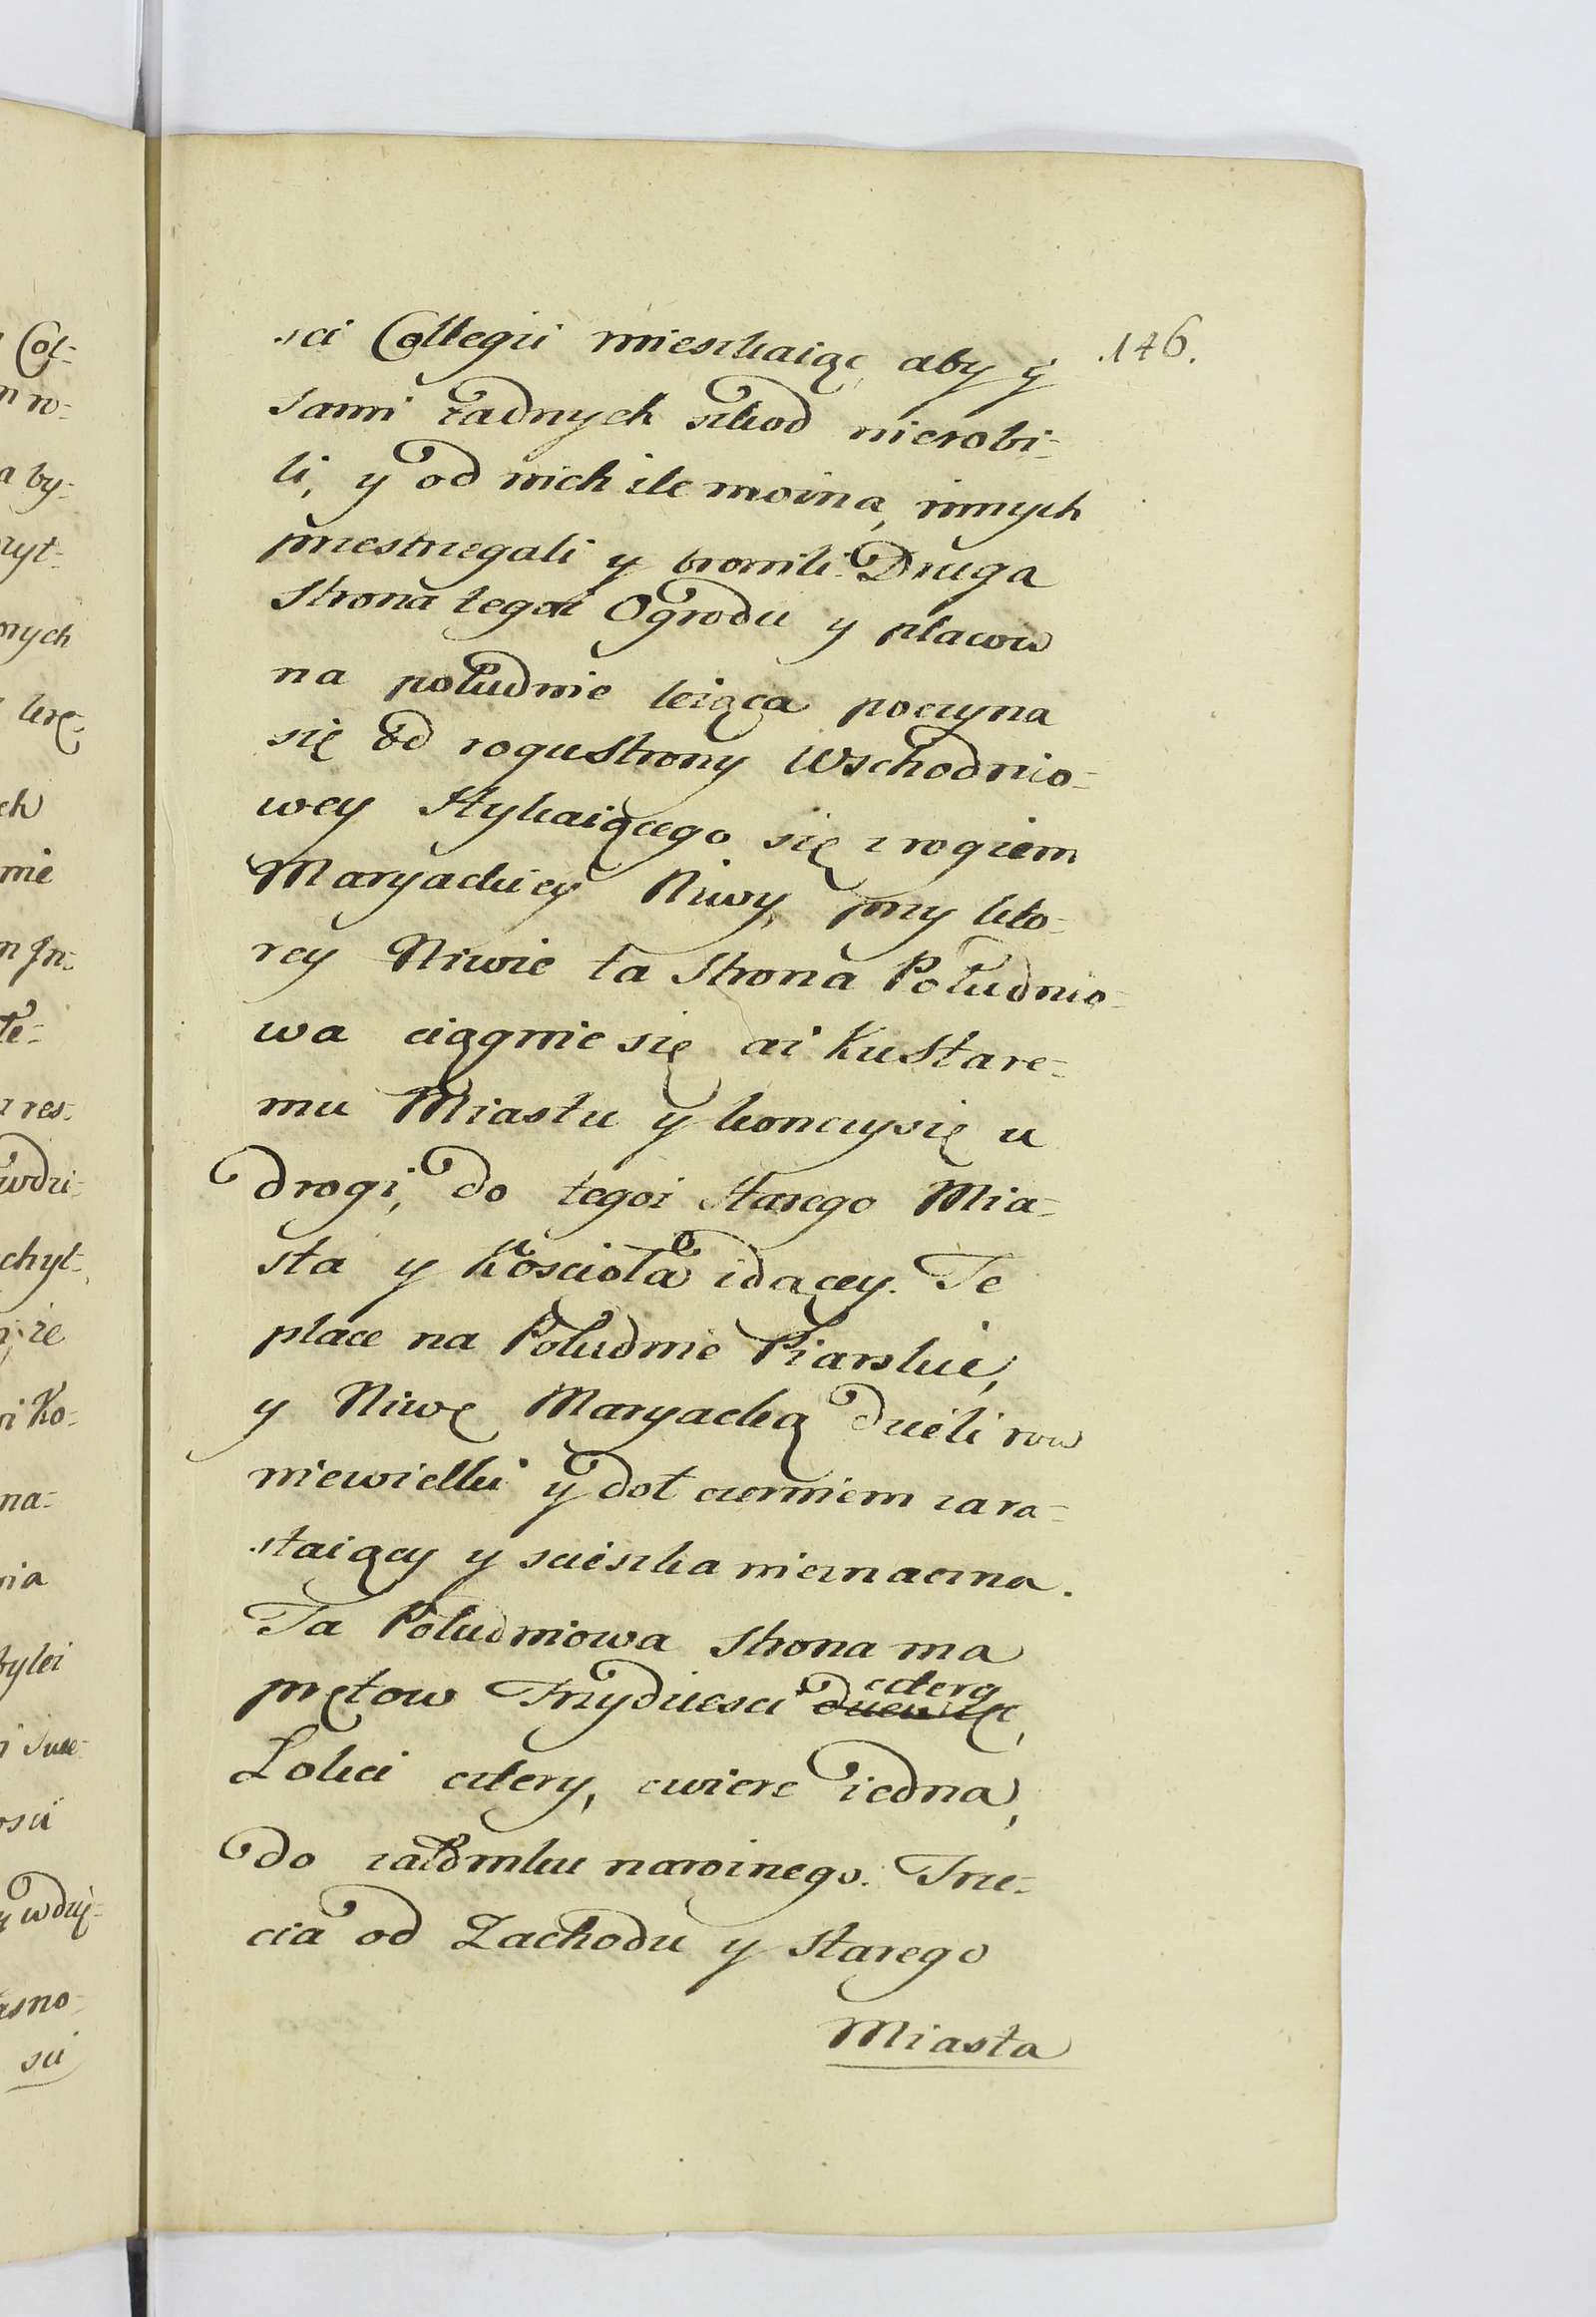 146.
sci Collegii mieszkaiąc aby y
sami żadnych szkod nierobi-
li, y od nich ile można, innych
przestrzegali y bronili. Druga
strona tegoż Ogrodu y placow
na południe leżąca poczyna
się od rogu strony Wschodnio-
wey stykaiącego się z rogiem
Maryackiey Niwy, przy kto-
rey Niwie ta strona Południo-
wa ciągnie się aż ku Stare-
mu Miastu y konczy się u
drogi, do tegoż starego Mia-
sta y Kościoła idącey. Te
place na Południe Piarskie,
y Niwę Maryacką dzieli row
niewielki y doł cierniem zara-
staiący y scieszka nieznaczna.
Ta Południowa strona ma
czterq
prętow Trzydziesci dziewięc,
Łokci cztery, cwierc iedna,
do załomku narożnego. Trze-
cia od Zachodu y starego
Miasta
Col-
n w-
a by-
nych
ch
nie
te-
res-
chyl-
że
Ko-
na-
nia
asno-
sci